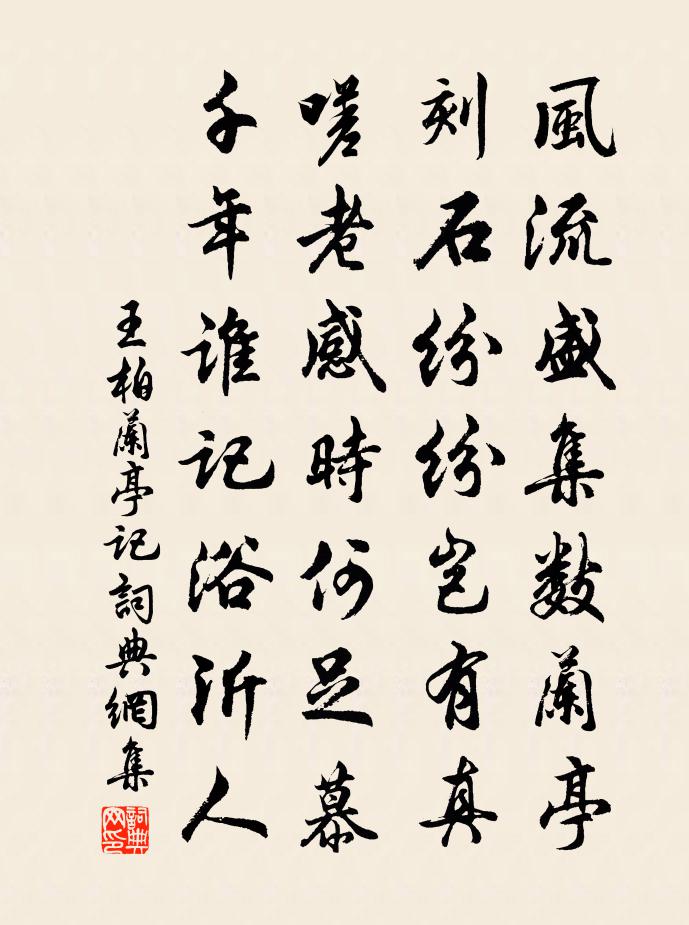 風流盛集數蘭亭
刻石紛紛豈有真
嗟老感時何足慕
千年誰記浴沂人
王柏蘭亭記詞典網集
詞典網印